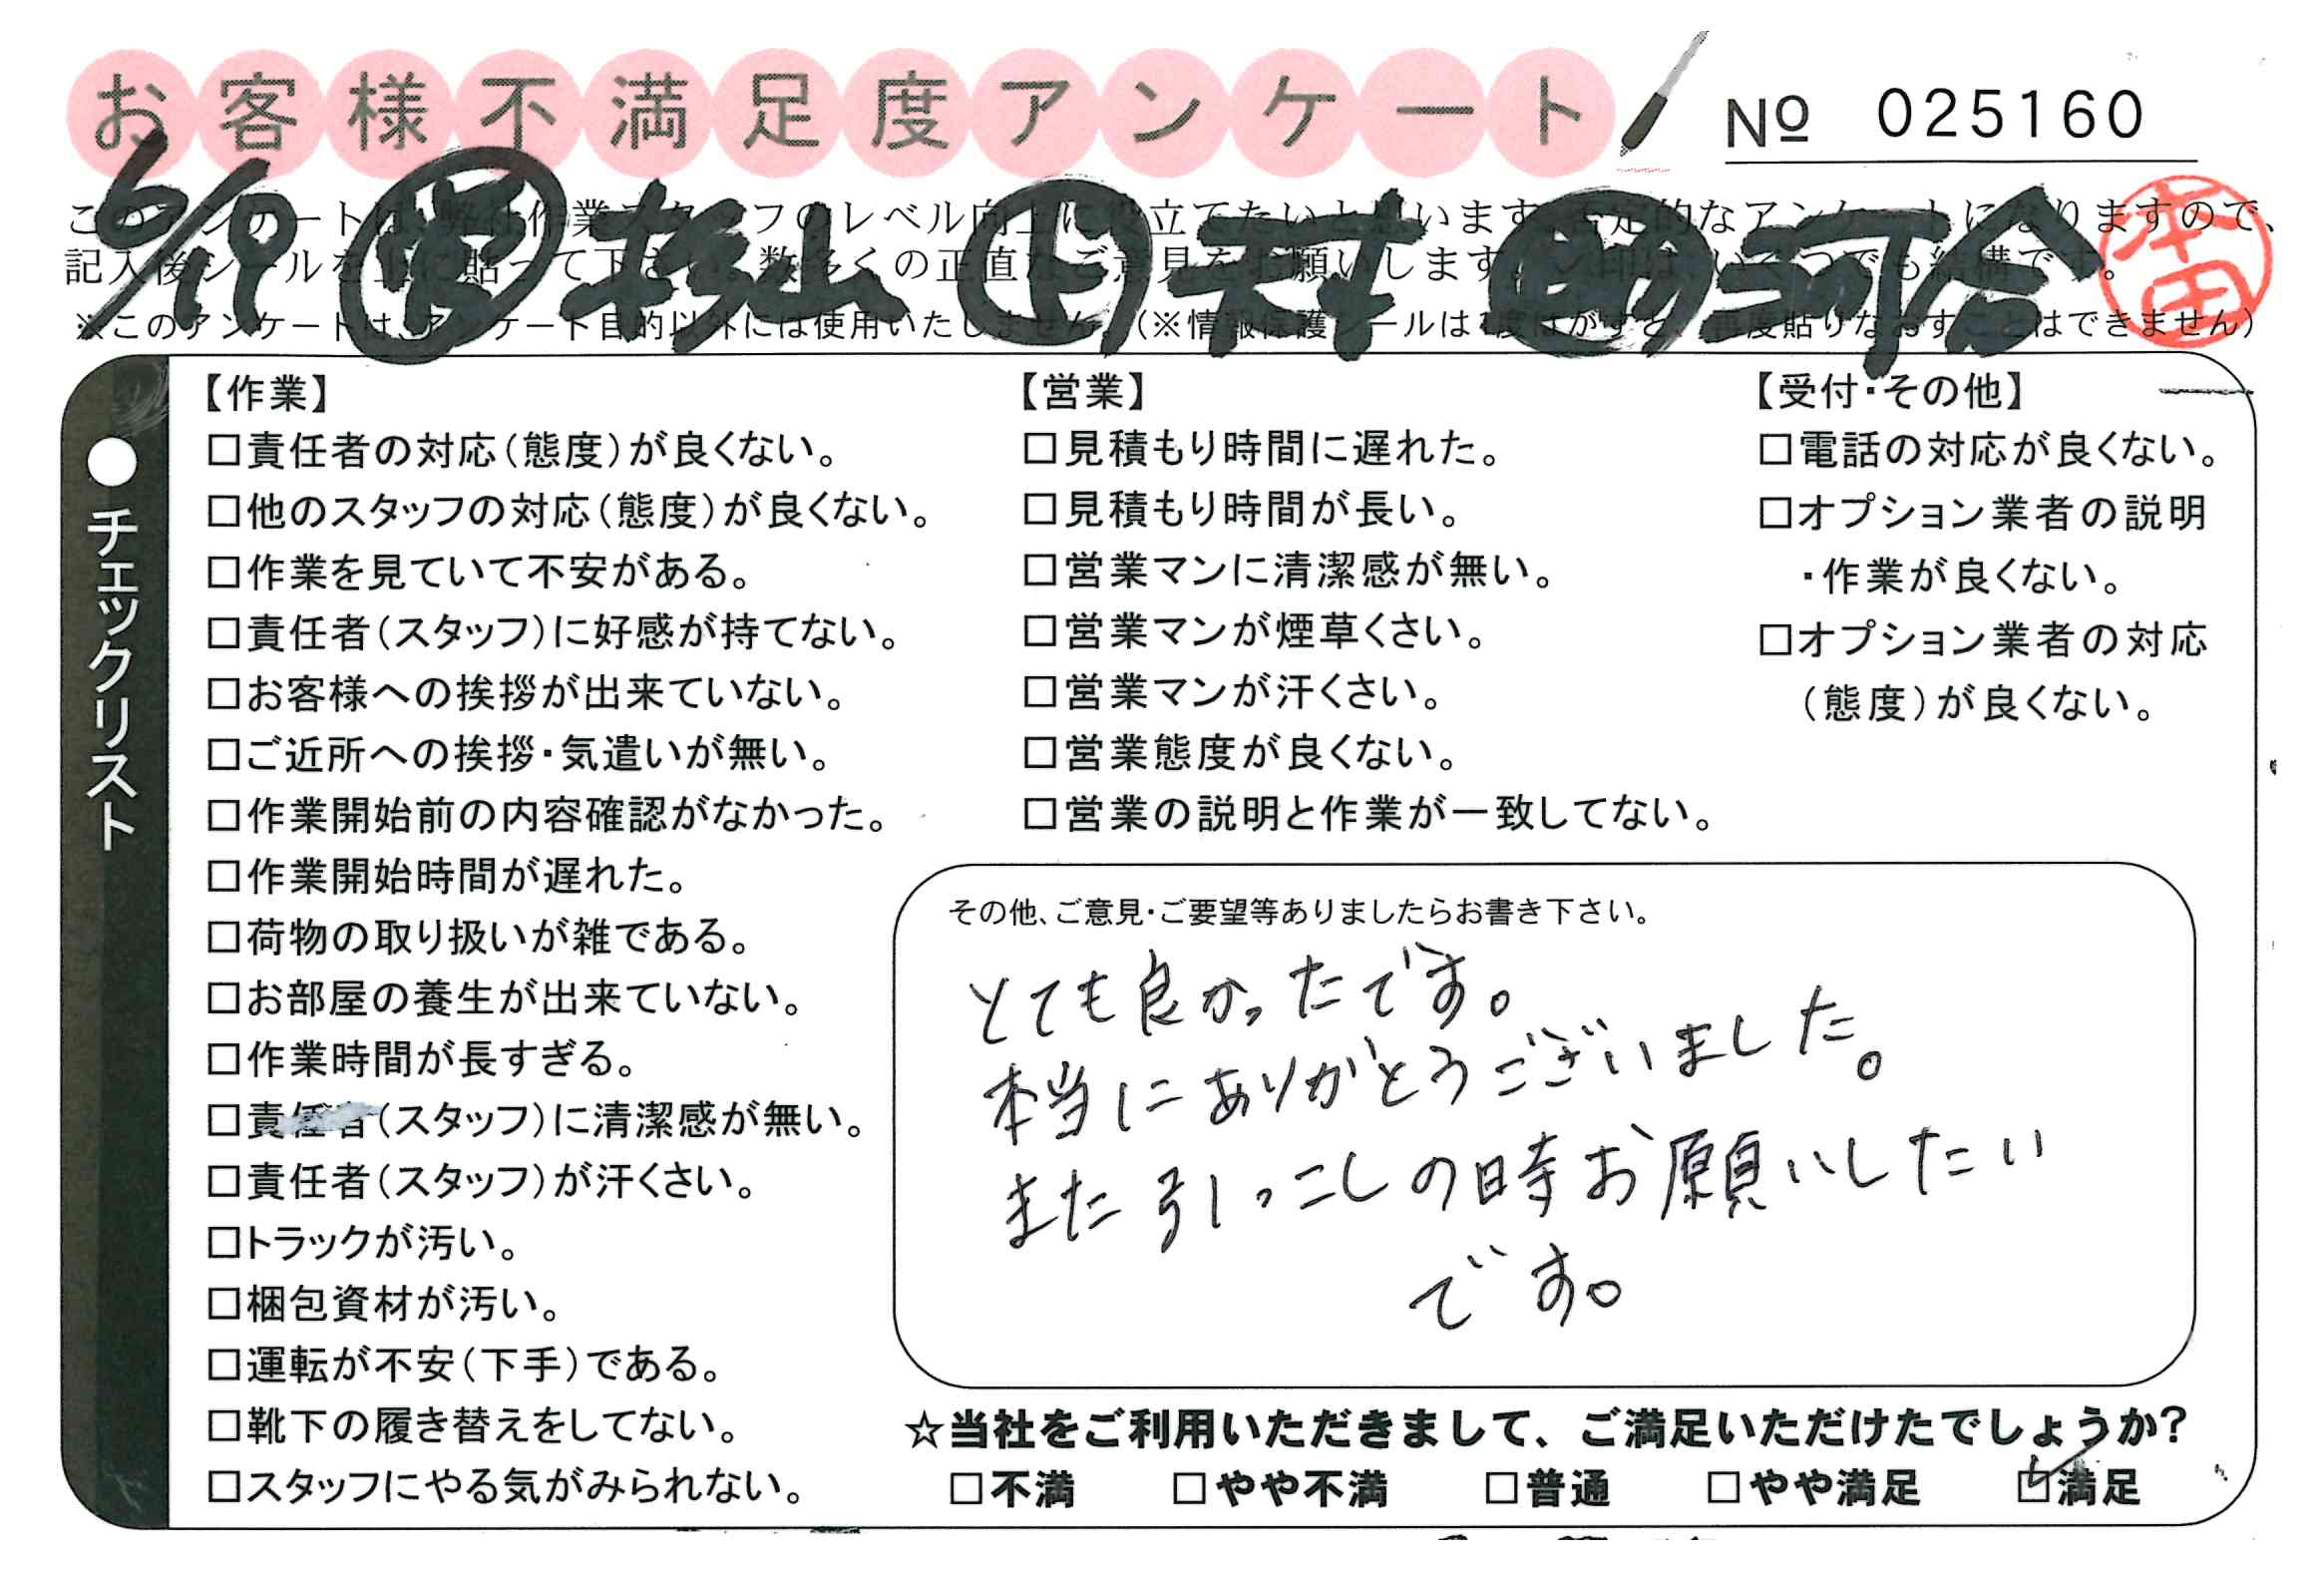 お客様不満足度アンケート
№ 025160
6/19 杉山 ト 村 助 河合
本田
このアンケートは、弊社作業スタッフのレベル向上に役立てたいと思います。否定的なアンケートになりますので、
記入後シールを上に貼って下さい。数多くの正直なご意見をお願いします。
※このアンケートは、アンケート目的以外には使用いたしません。（※情報保護シールは1度はがすと、再度貼りなおすことはできません）
●チェックリスト
【作業】
□責任者の対応（態度）が良くない。
□他のスタッフの対応（態度）が良くない。
□作業を見ていて不安がある。
□責任者（スタッフ）に好感が持てない。
□お客様への挨拶が出来ていない。
□ご近所への挨拶・気遣いが無い。
□作業開始前の内容確認がなかった。
□作業開始時間が遅れた。
□荷物の取り扱いが雑である。
□お部屋の養生が出来ていない。
□作業時間が長すぎる。
□責任者（スタッフ）に清潔感が無い。
□責任者（スタッフ）が汗くさい。
□トラックが汚い。
□梱包資材が汚い。
□運転が不安（下手）である。
□靴下の履き替えをしてない。
□スタッフにやる気がみられない。
【営業】
□見積もり時間に遅れた。
□見積もり時間が長い。
□営業マンに清潔感が無い。
□営業マンが煙草くさい。
□営業マンが汗くさい。
□営業態度が良くない。
□営業の説明と作業が一致してない。
【受付・その他】
□電話の対応が良くない。
□オプション業者の説明
・作業が良くない。
□オプション業者の対応
（態度）が良くない。
その他、ご意見・ご要望等ありましたらお書き下さい。
とても良かったです。
本当にありがとうございました。
また引っこしの時お願いしたい
です。
☆当社をご利用いただきまして、ご満足いただけたでしょうか？
□不満 □やや不満 □普通 □やや満足 ☑満足